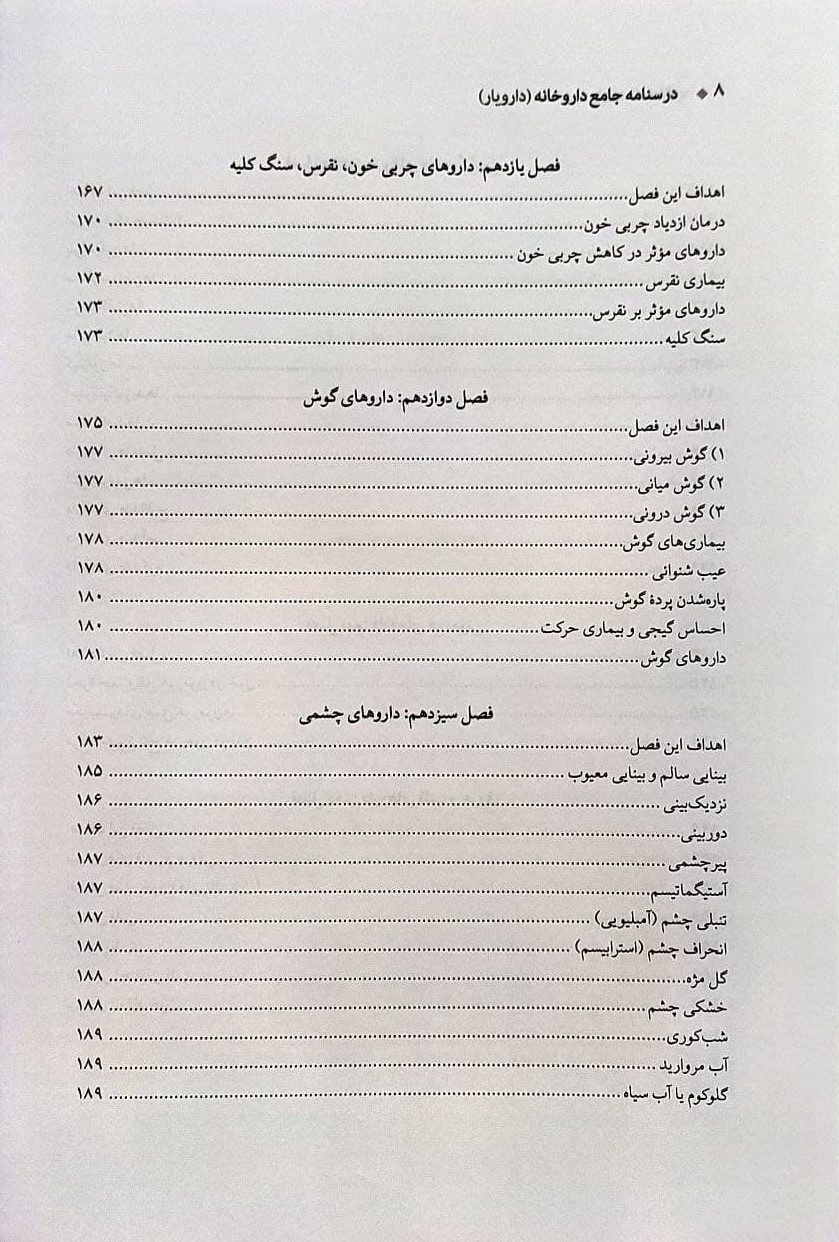 ۸ ◆ درسنامه جامع داروخانه (دارویار)
فصل یازدهم: داروهای چربی خون، نقرس، سنگ کلیه
اهداف این فصل ........ ۱۶۷
درمان ازدیاد چربی خون ........ ۱۷۰
داروهای مؤثر در کاهش چربی خون ........ ۱۷۰
بیماری نقرس ........ ۱۷۲
داروهای مؤثر بر نقرس ........ ۱۷۳
سنگ کلیه ........ ۱۷۳
فصل دوازدهم: داروهای گوش
اهداف این فصل ........ ۱۷۵
۱) گوش بیرونی ........ ۱۷۷
۲) گوش میانی ........ ۱۷۷
۳) گوش درونی ........ ۱۷۷
بیماری‌های گوش ........ ۱۷۸
عیب شنوانی ........ ۱۷۸
پاره‌شدن پردۀ گوش ........ ۱۸۰
احساس گیجی و بیماری حرکت ........ ۱۸۰
داروهای گوش ........ ۱۸۱
فصل سیزدهم: داروهای چشمی
اهداف این فصل ........ ۱۸۳
بینایی سالم و بینایی معیوب ........ ۱۸۵
نزدیک‌بینی ........ ۱۸۶
دوربینی ........ ۱۸۶
پیرچشمی ........ ۱۸۷
آستیگماتیسم ........ ۱۸۷
تنبلی چشم (آمبلیوپی) ........ ۱۸۷
انحراف چشم (استرابیسم) ........ ۱۸۸
گل مژه ........ ۱۸۸
خشکی چشم ........ ۱۸۸
شب‌کوری ........ ۱۸۹
آب مروارید ........ ۱۸۹
گلوکوم یا آب سیاه ........ ۱۸۹